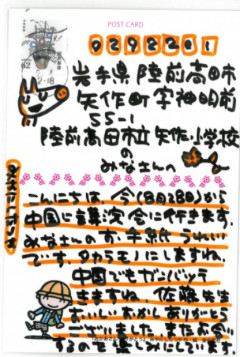 POST CARD
0292201
岩手県陸前高田市
矢作町字神明前
55-1
陸前高田市立矢作小学校
の
みなさんへ
こんにちは。今(8月28日)から
中国に講演会に行きます。
みなさんのお手紙うれしい
です。タカラモノにしますね。
中国でもガンバッテ
きますね。佐藤先生
おいしいおかしありがとう
ございました。またお会い
するのを楽しみにしています。